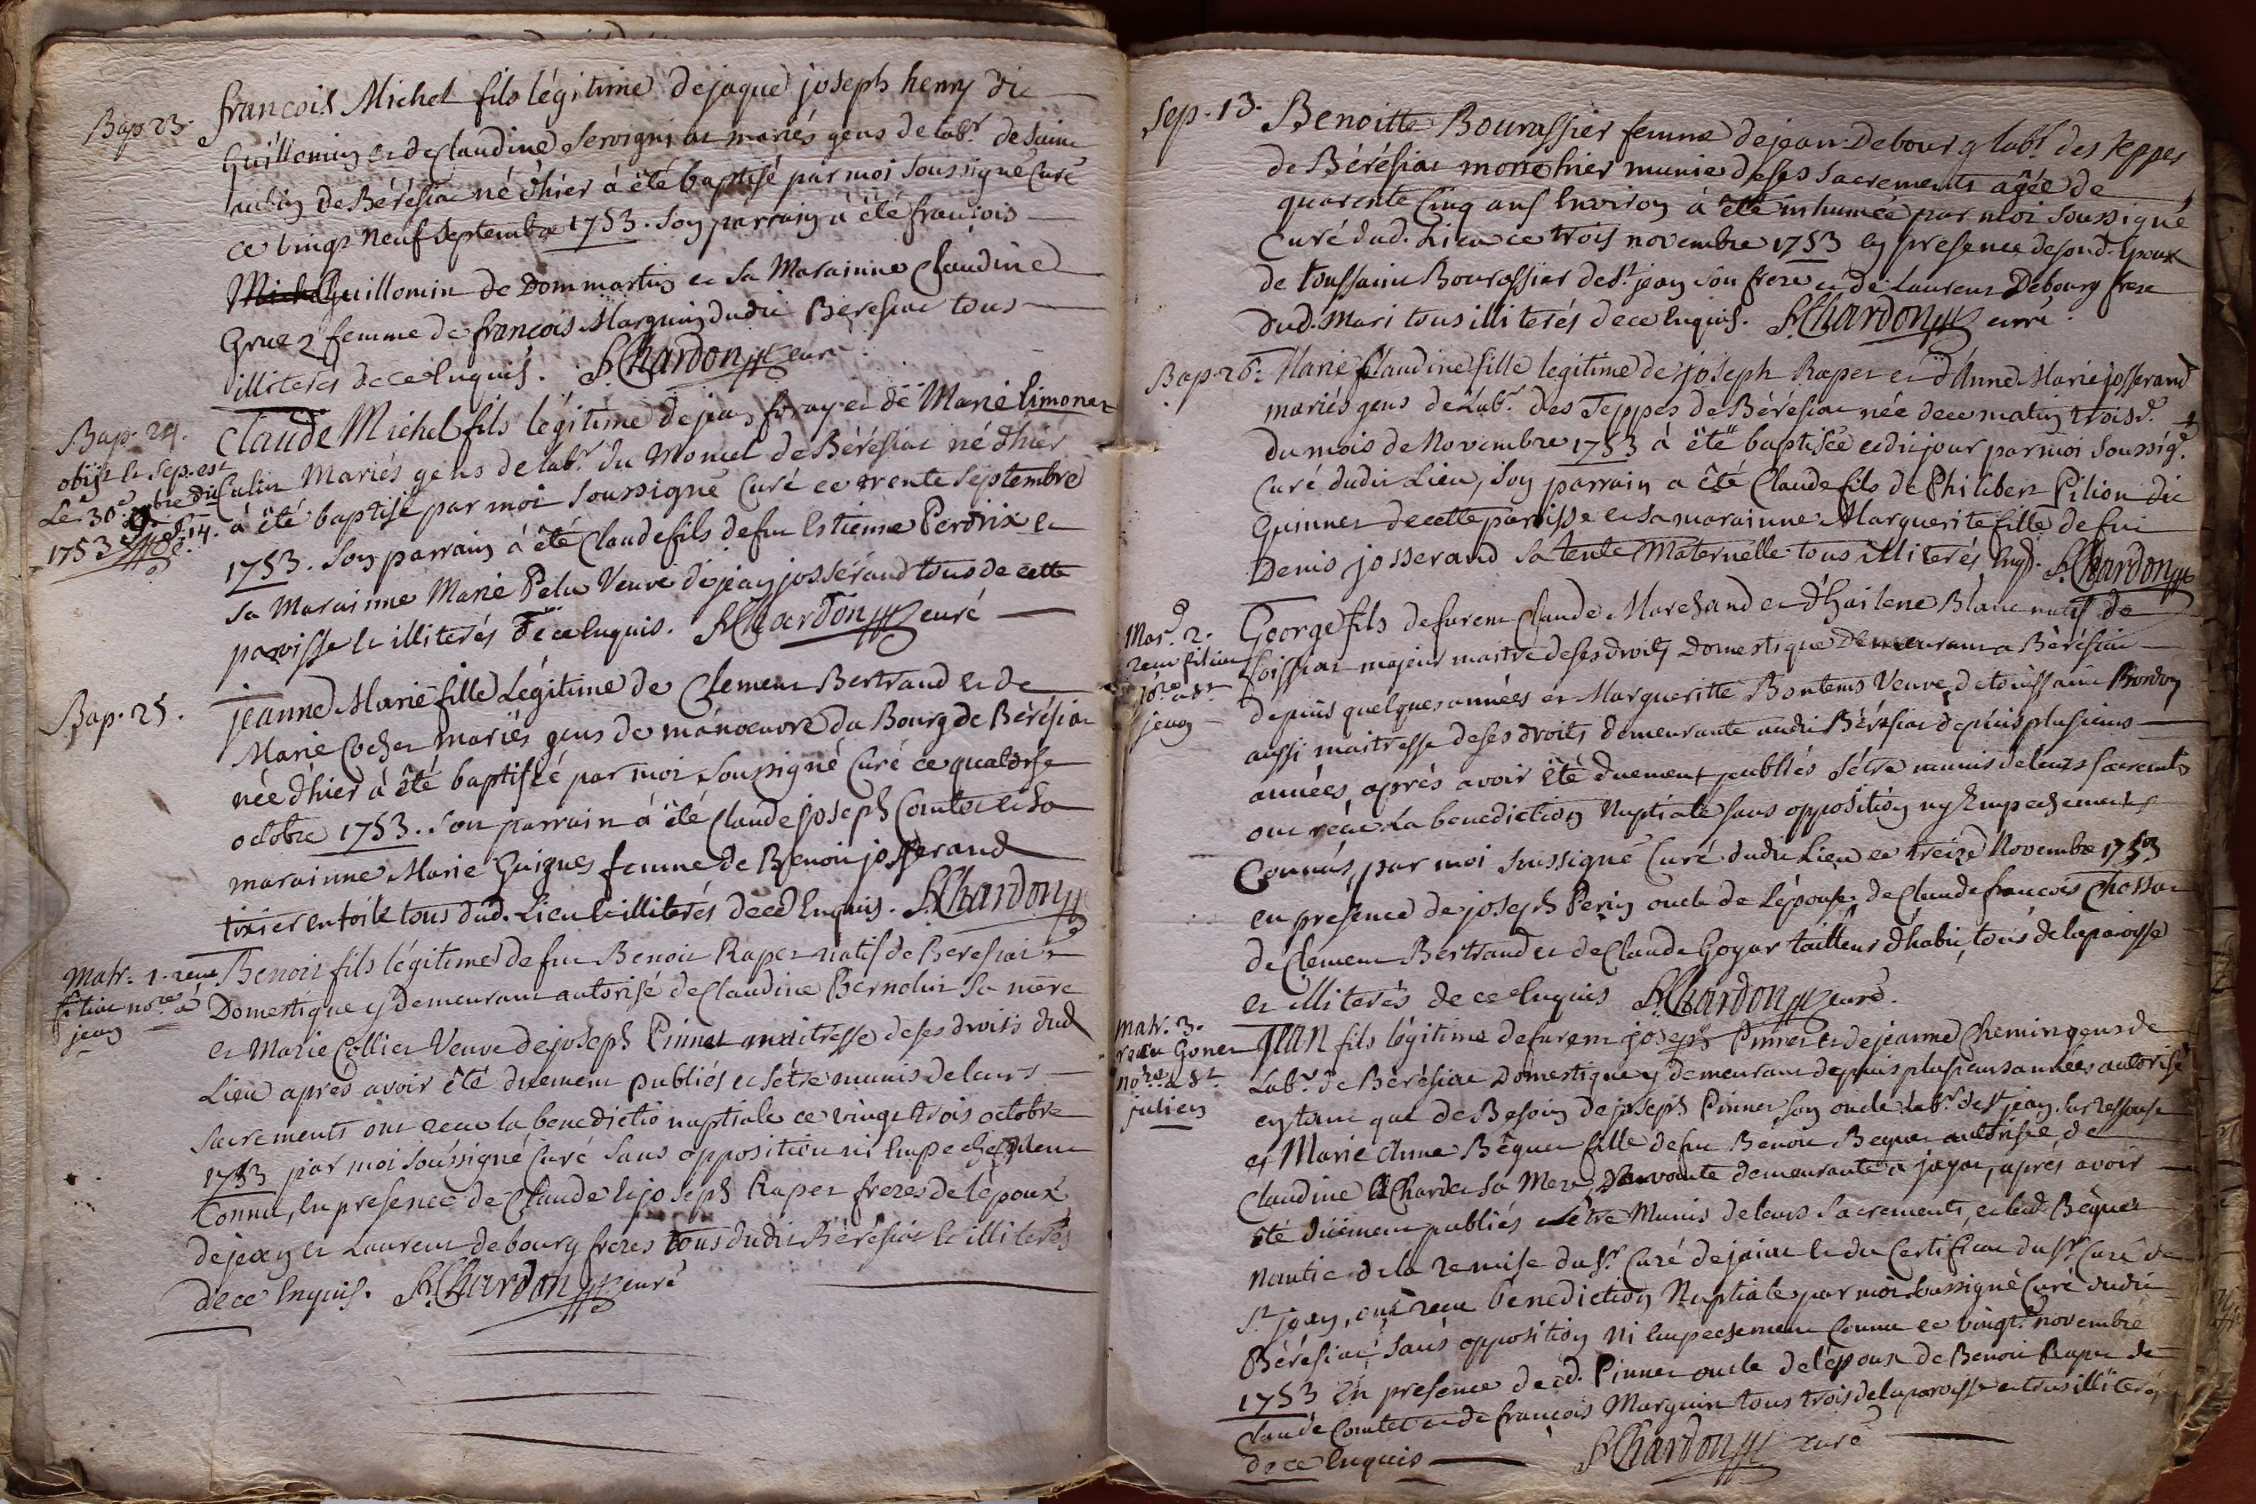 Bap. 23.
francois Michel fils légitime de jaque joseph henry dit
Guillemin et de Claudine Servignat mariés gens de labr. de Saint
aubin de Bérésiat né d'hier à été baptisé par moi soussigné Curé
ce vingt neuf septembre 1753. son parrain à été francois
Guillemin de Dommartin et sa Marainne Claudine
Gruez femme de francois Marguin dudit Beresiat tous
illiterés de ce Enquis. Chardon curé
Bap. 24.
obijt et sep. est
Le 30e
1753
14.
Claude Michel fils légitime de jean foray et de Marie Limonet
Mariés gens de labr. du Moncel de Bérésiat né d'hier
à été baptisé par moi soussigné Curé ce trente Septembre
1753. son parrain à été Claude fils de feu Estienne Perdrix et
sa Marainne Marie Pelu Veuve de jean josserand tous de cette
paroisse et illiterés de ce Enquis. Chardon curé
Bap. 25.
jeanne Marie fille Légitime de Clement Bertrand et de
Marie Cochet mariés gens de manoeuvre du Bourg de Bérésiat
née d'hier à été baptisée par moi soussigné Curé ce quatorse
octobre 1753. son parrain à été Claude joseph Comtet et sa
marainne Marie Guigues femme de Benoit josserand
tixier en toile tous dud. Lieu et illiterés de ce Enquis. Chardon
Matr. 1. receu
filion nore. à
jean
Benoit fils légitime de feu Benoit Rapet natif de Beresiat
Domestique y demeurant autorisé de Claudine Bernolin sa mère
et Marie Collier Veuve de joseph Pinnet maitresse de ses droits dud
Lieu aprés avoir été duement publiés et s'étre munis de leurs
sacrements ont receu la benedictio nuptiale ce vingt trois octobre
1753 par moi soussigné Curé sans opposition ni Empechement
Connu, En presence de Claude et joseph Rapet freres de l'époux
de jean et Laurent debourg freres tous dudit Bérésiat et illiterés
de ce Enquis. Chardon curé
Sep. 13.
Benoitte Bourassier femme de jean Debourg labr. des Teppes
de Bérésiat morte hier munie de ses sacrements agée de
quarente Cinq ans Environ à été inhumée par moi soussigné
Curé dud. Lieu ce trois novembre 1753 en presence de sond. Epoux
de toussaint Bourassier de St. jean son frere et de Laurent Debourg frere
dud. Mari tous illiterés de ce Enquis. Chardon curé
Bap. 26.
Marie Claudine fille legitime de joseph Rapet et d'Anne Marie josserand
mariés gens de Labr. des Teppes de Bérésiat née de ce matin trois
du mois de Novembre 1753 à été baptisée cedit jour par moi soussigé
Curé dudit Lieu, son parrain a été Claude fils de Philibert Pilion dit
Guinnet de cette paroisse et sa marainne Marguerite fille de feu
Denis josserand sa tente Maternelle tous illiterés Enqs. Chardon
Mar. 2.
receu filion
nore. à St.
jean
George fils de furent Claude Marchand et d'hailene Blanc natif de
foissiat majeur maitre de ses droits Domestique Demeurant a Bérésiat
depuis quelques années et Margueritte Bontems Veuve de toussaint Bordon
aussi maitresse de ses droits demeurante audit Bérésiat depuis plusieurs
années, aprés avoir été duement publiés s'étre munis de leurs sacrements
ont receu La benediction Nuptiale sans opposition ny Empechement
Connus, par moi soussigné Curé dudit Lieu ce treize Novembre 1753
en presence de joseph Perin oncle de L'épouse de Claude francois Chossat
de Clement Bertrand et de Claude Goyat tailleur d'habit, tous de la paroisse
et illiterés de ce Enquis Chardon curé.
Matr. 3.
receu Gonet
nore. à St.
julien
JEAN fils légitime de furent joseph Pinnet et de jeanne Chemin gens de
Labr. de Bérésiat Domestique y demeurant depuis plusieurs années autorisé
en tant que de Besoin de joseph Pinnet son oncle Labr. de St. jean sur ressouse
et Marie Anne Béquet fille de feu Benoit Bequet autorisée, de
Claudine Charde sa Mere servante demeurante a jayat, aprés avoir
été duement publiés s'étre Munis de leurs sacrements, et lad. Béquet
nantie de la remise du Sr. Curé de jaiat et du Certificat du Sr. Curé de
St. jean, ont receu benediction Nuptiale par moi soussigné Curé dudit
Bérésiat, sans opposition ni Empechement Connu ce vingt novembre
1753 En presence de cd. Pinnet oncle de l'époux de Benoit Rapet de
Claude Comtet et de francois Marguin tous trois de la paroisse et tous illiterés
de ce Enquis Chardon curé